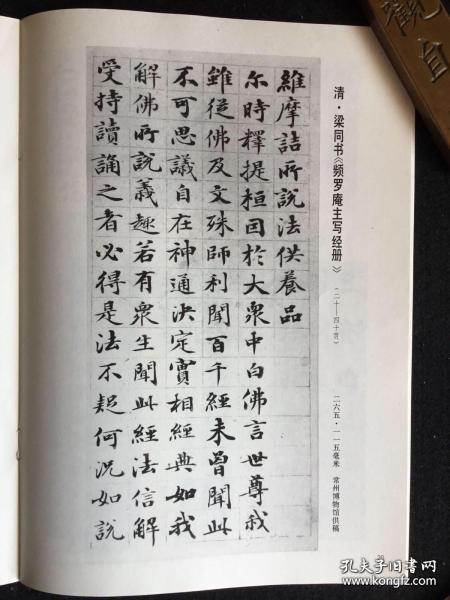 觀自
清·梁同书《频罗庵主写经册》
二六五·一一五毫米 常州博物馆供稿
維摩詰所説法供養品
尔時釋提桓因於大衆中白佛言世尊我
雖從佛及文殊師利聞百千經未曾聞此
不可思議自在神通決定實相經典如我
解佛所説義趣若有衆生聞此經法信解
受持讀誦之者必得是法不疑何况如説
孔夫子旧书网